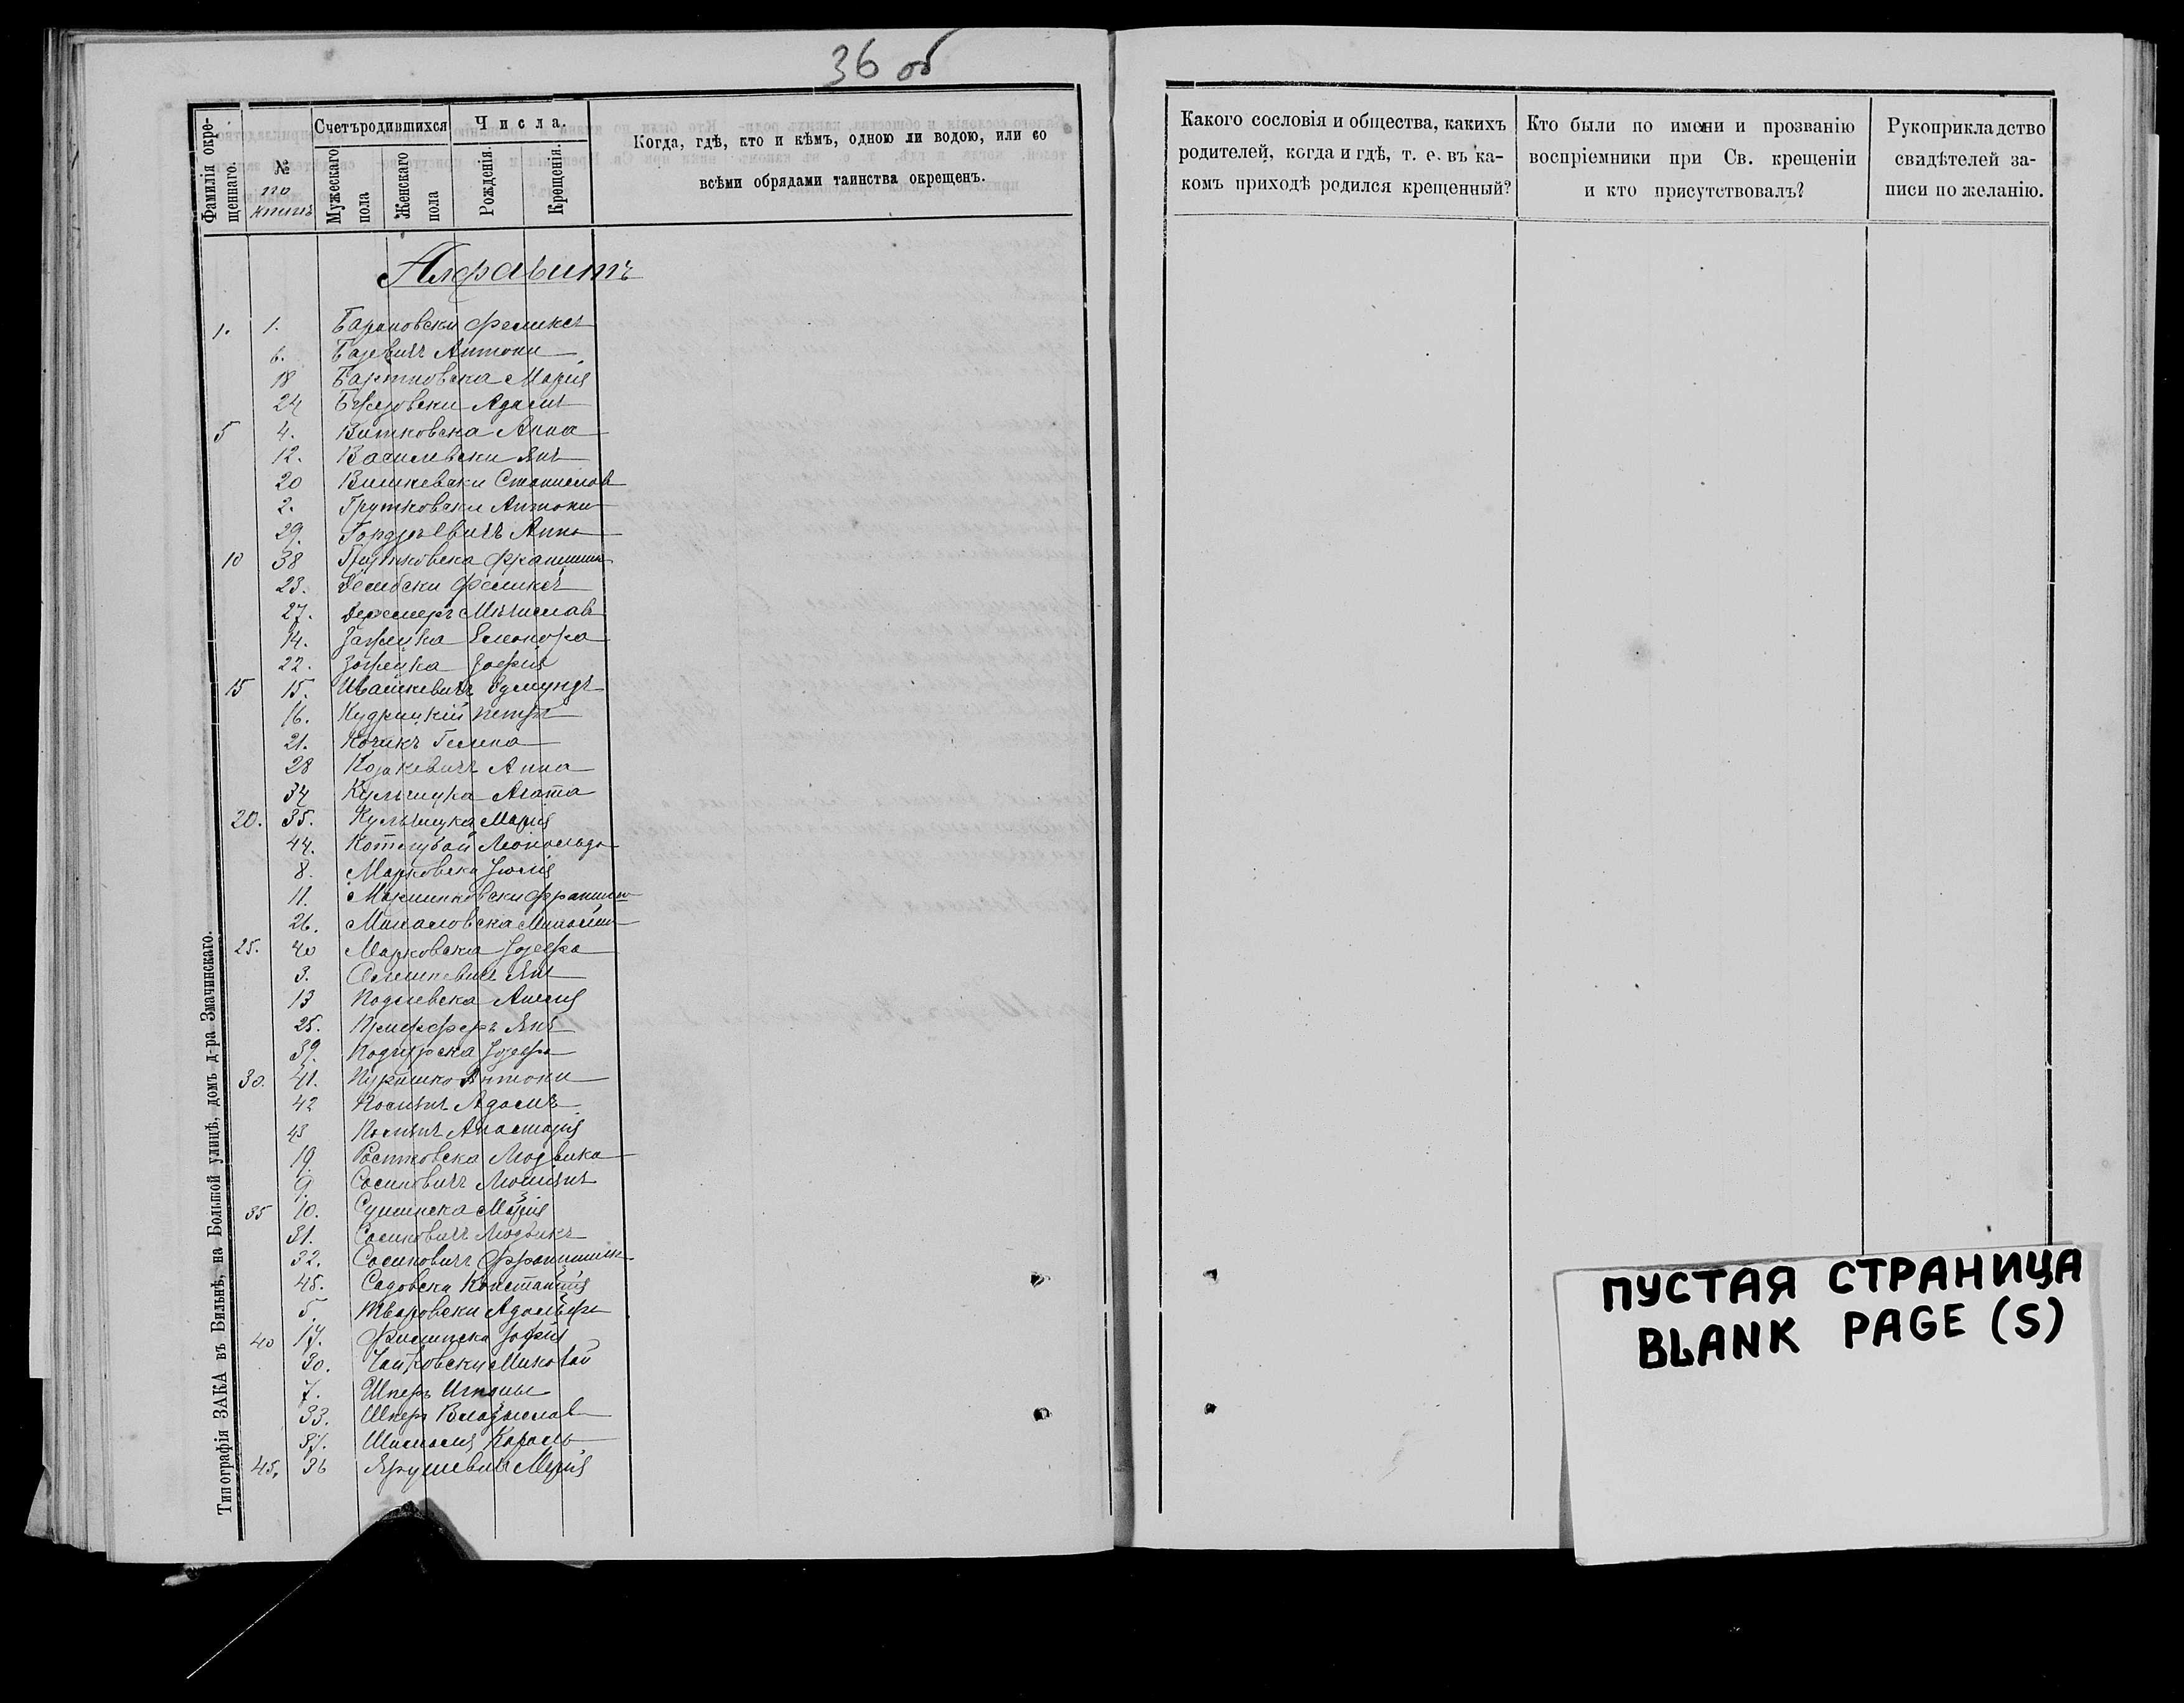 36 об
Фамилія окрещеннаго.
№ по книгѣ
Счетъ родившихся
Мужескаго пола
Женскаго пола
Числа.
Рожденія.
Крещенія.
Когда, гдѣ, кто и кѣмъ, одною ли водою, или со
всѣми обрядами таинства окрещенъ.
Алфавитъ
1. 1. Барановски Феликсъ
6. Базевичъ Антони
18 Бартновска Марія
24 Адамъ
5 4. Витковска Анна
12. Василевски Янъ
20 Вишневски Станислав
2. Грутковски Антони
29. Анна
10 38 Грутковска Францишка
23. Дембски Феликсъ
27. Мѣчислав
14. Зарѣцка Елеонора
22. Зарѣцка Зофія
15 15. Ивашкевичъ Эдмундъ
16. Кудрицкій Петръ
21. Кочикъ Гелена
28 Козакевичъ Анна
34 Кульчицка Агата
20. 35. Кульчицка Марія
44. Котлубай Леопольда
8. Марковска Юлія
11. Марцинковски Францишек
26. Михаловска Михалина
25. 40 Марковска Юзефа
3. Олешкевичъ Янъ
13 Подлевска Анеля
25. Пфефферъ Янъ
39. Подгурска Юзефа
30. 41. Антони
42 Адамъ
43 Анастазія
19. Ростковска Людвика
9. Сосиновичъ Люціянъ
35 10. Марія
31. Сосиновичъ Людвикъ
32. Сосиновичъ Францишек
45. Садовска Констанція
5. Тваровски Адольфъ
40 17. Филипска Зофія
30. Чайковски Миколай
7. Шперъ Игнацы
33. Шперъ Владыслав
37. Кароль
45. 36 Ярушевичъ Марія
Типографія ЗАКА въ Вильнѣ, на Большой улицѣ, домъ д-ра Змачинскаго.
Какого сословія и общества, какихъ
родителей, когда и гдѣ, т. е. въ ка-
комъ приходѣ родился крещенный?
Кто были по имени и прозванію
воспріемники при Св. крещеніи
и кто присутствовалъ?
Рукоприкладство
свидѣтелей за-
писи по желанію.
ПУСТАЯ СТРАНИЦА
BLANK PAGE (S)